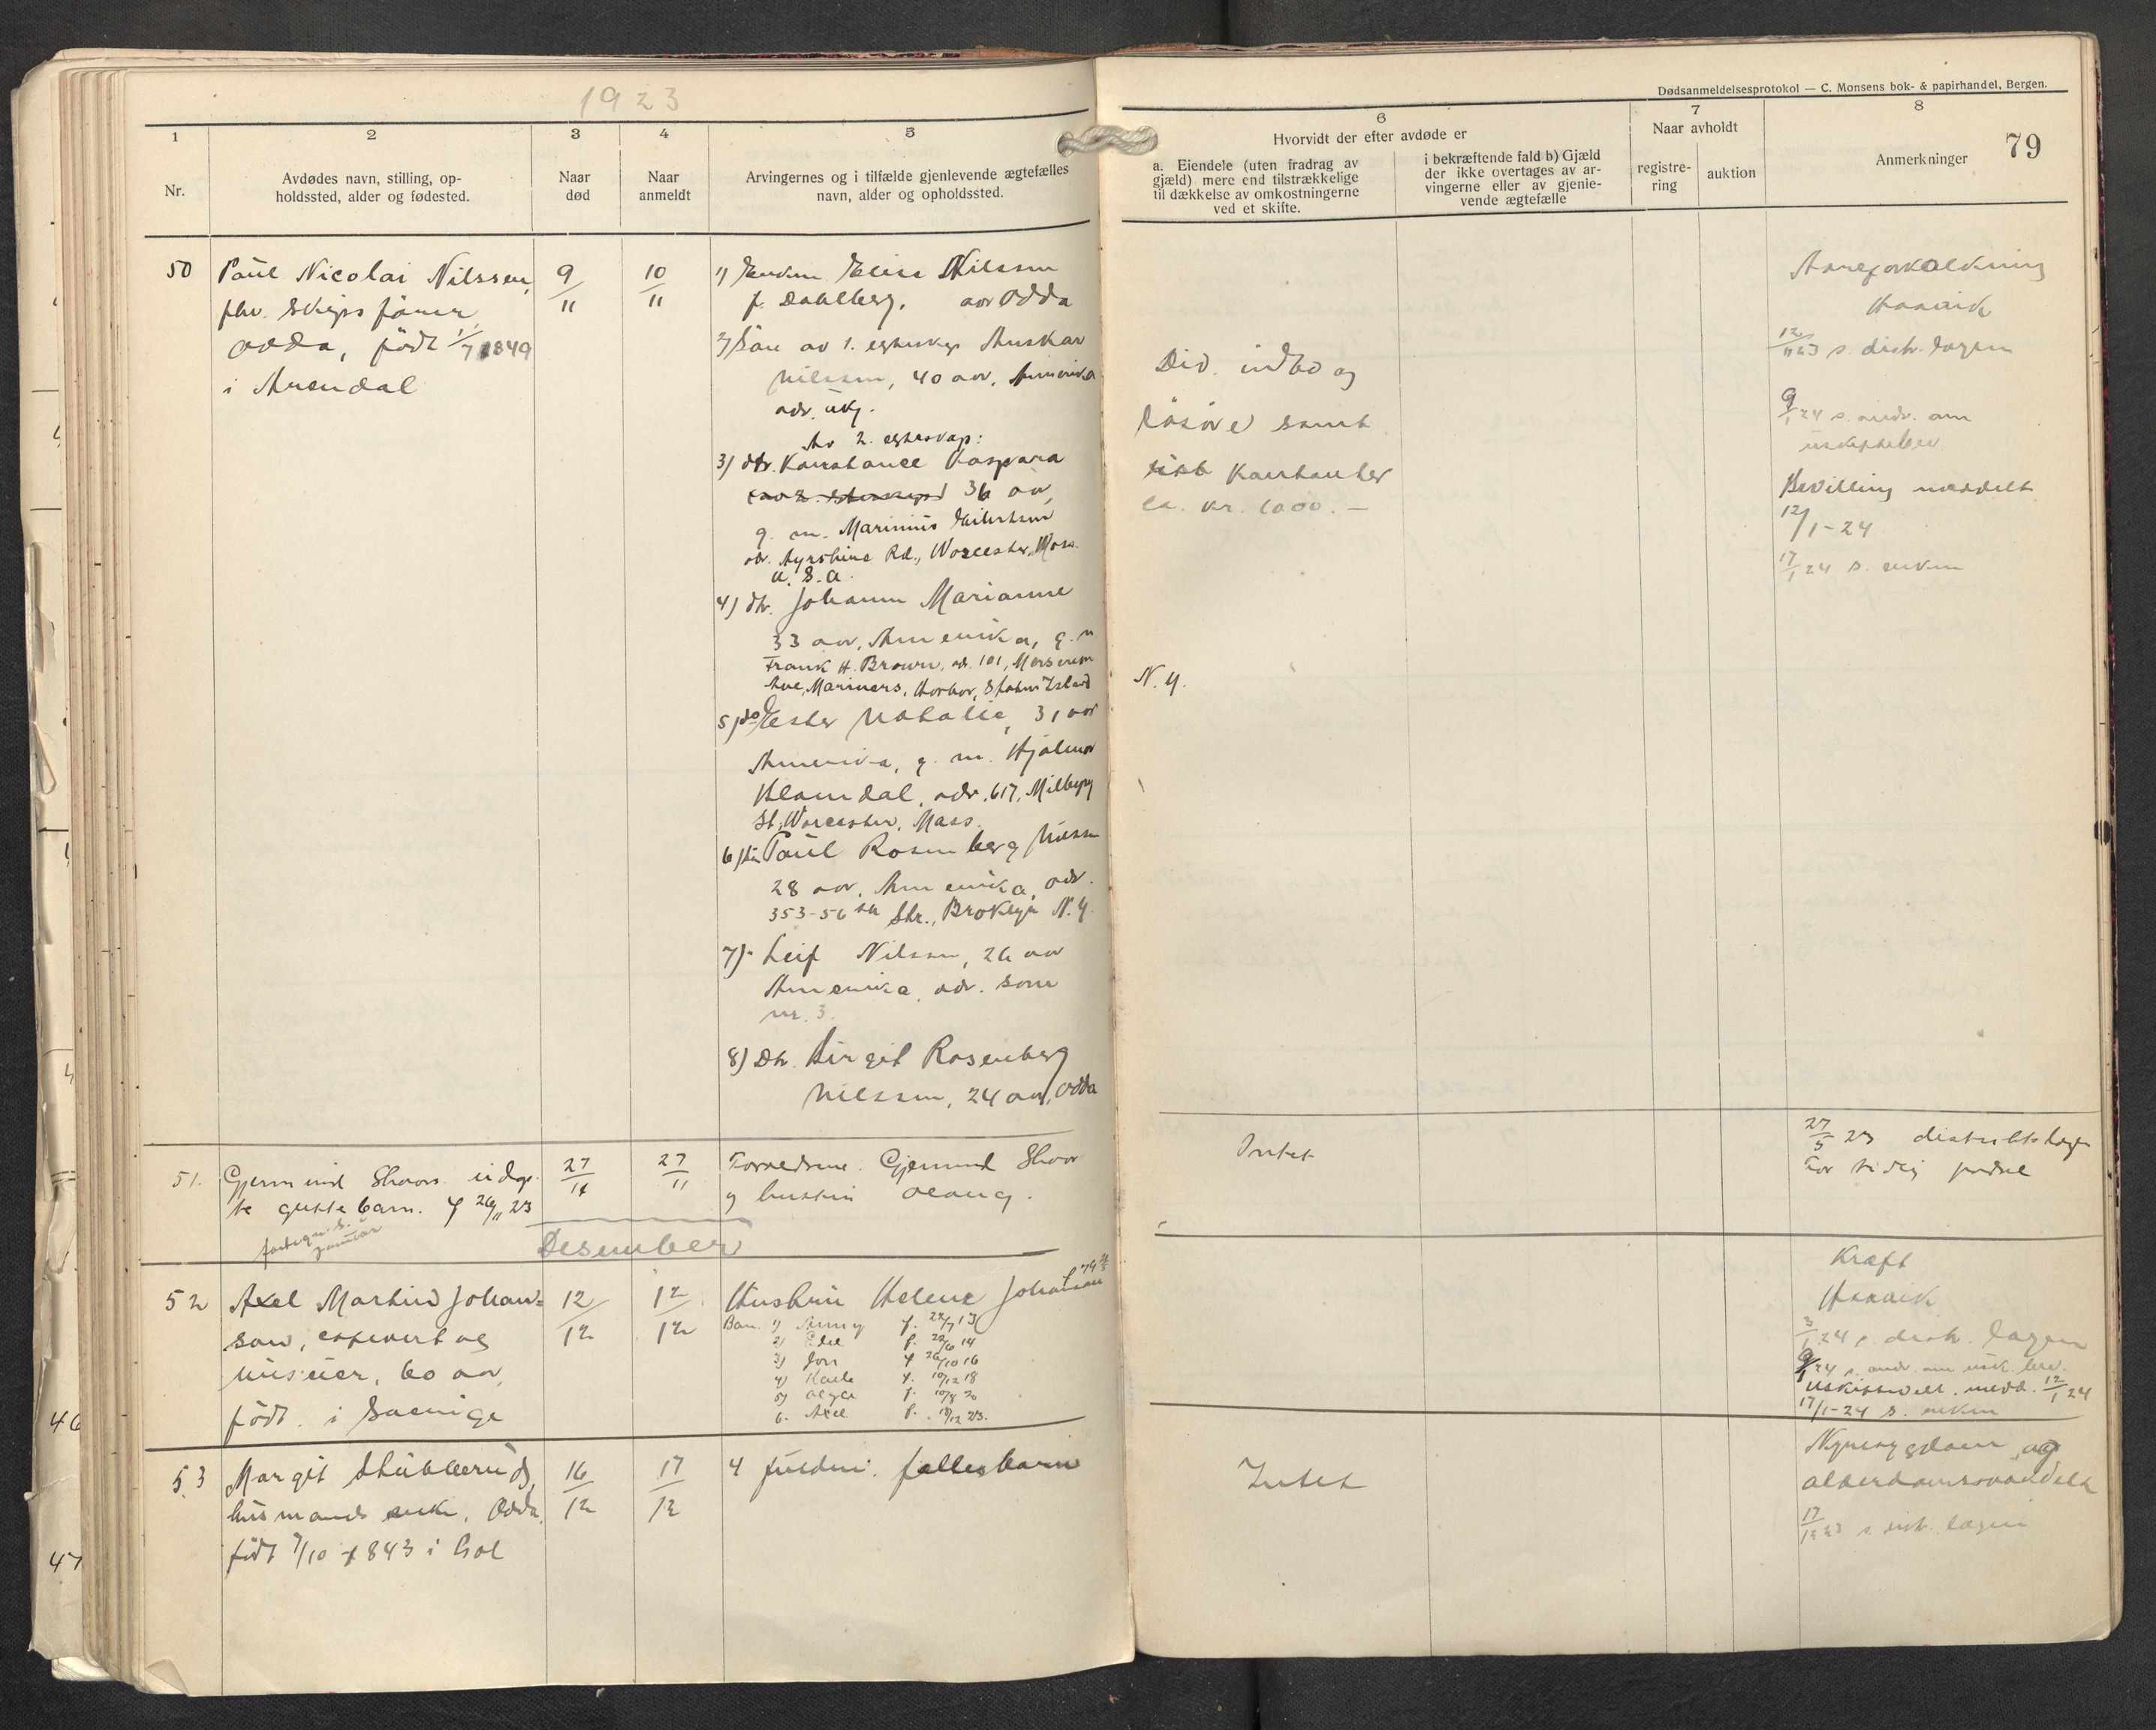 1923
Dødsanmeldelsesprotokol — C. Monsens bok- & papirhandel, Bergen.
79
1
2
3
4
5
6
7
8
Nr.
Avdødes navn, stilling, op-
holdssted, alder og fødested.
Naar
død
Naar
anmeldt
Arvingernes og i tilfælde gjenlevende ægtefælles
navn, alder og opholdssted.
Hvorvidt der efter avdøde er
a. Eiendele (uten fradrag av
gjæld) mere end tilstrækkelige
til dækkelse av omkostningerne
ved et skifte.
i bekræftende fald b) Gjæld
der ikke overtages av ar-
vingerne eller av gjenle-
vende ægtefælle
Naar avholdt
registre-
ring
auktion
Anmerkninger
50
Paul Nicolai Nilssen,
fhv. skibsfører
Odda, født 1/7 1849
i Arendal
9/11
10/11
1) Enken Elise Nilssen
f. Dahlberg, aar Odda
2) Søn av 1. egteskap Anskar
Nilssen, 40 aar, Amerika
adr. ukj.
Av 2. egteskap:
3) dtr. Constance Kaspara
36 aar,
g. m. Marinius Eilertsen
adr. Ayrshire Rd., Worcester, Mass.
U. S. A.
4) dtr. Johanne Marianne
33 aar, Amerika, g. m
Frank H. Brown, adr. 101,
Ave, Mariners, Harbor, Staten Island
N. Y.
5) do Ester Natalie, 31 aar
Amerika, g. m. Hjalmar
Blomdal, adr. 617, Milbury
St, Worcester, Mass.
6) søn Paul Rosenberg Nilssen
28 aar, Amerika, adr.
353-56th Str., Broklyn N. Y.
7) " Leif Nilssen, 26 aar
Amerika, adr. som
nr. 3.
8) Dtr. Birgit Rosenberg
Nilssen, 24 aar, Odda
Div. indbo og
løsøre samt
kontanter
ca. kr. 1000.—
Aareforkalkning
12/11 23 s. distr. lægen
9/1 24 s. andr. om
uskiftebev
Bevilling meddelt
12/1-24
17/1 24 s. enken
51.
Gjermund Skaars udøp-
te guttebarn. f 26/11 23
27/11
27/11
Forældrene Gjermund Skaar
g hustru Olaug.
Intet
27/5 23 distriktslægen
For tidlig fødsel
Desember
52
Axel Martin Johan-
son,
60 aar,
født i Sverige
12/12
12/12
Hustru Helene Johanson
Barn 1) Anny f. 22/7 13
2) f. 22/6 14
3) f 26/10 16
4) f. 10/12 18
5) f. 10/8 20
6. Axel f. 18/12 23.
Kræft
3/1 24 s. distr. lægen
9/1 24 s. andr. om usk. bev.
Uskiftebevill. medd. 12/1 24
17/1-24 s. enken
53
Margit Stubberud,
husmands enke, Odda,
født 7/10 1843 i Gol
16/12
17/12
4 fuldm. fællesbarn
Intet
Nyresygdom og
alderdomssvakhet
17/12 23 s. distr. lægen
46
47